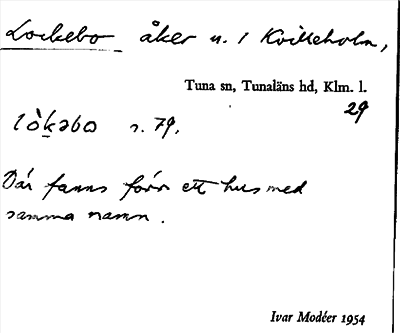 Lockebo åker u. 1 Kvilleholm,
Tuna sn, Tunaläns hd, Klm. l.
29
lòkəbo s. 79.
Där fanns förr ett hus med
samma namn.
Ivar Modéer 1954